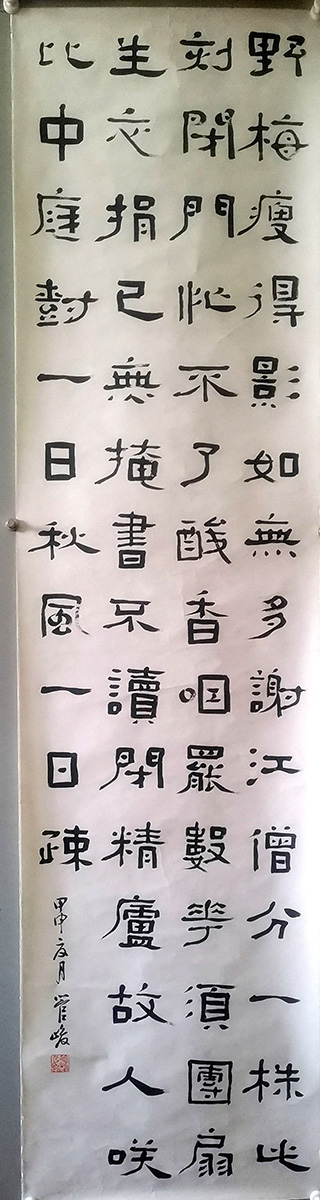 野梅瘦得影如無多謝江僧分一株此
刻閉門忙不了酸香咽罷數花須團扇
生衣捐已無掩書不讀閉精廬故人咲
比中庭樹一日秋風一日疎
甲申 月 管峻